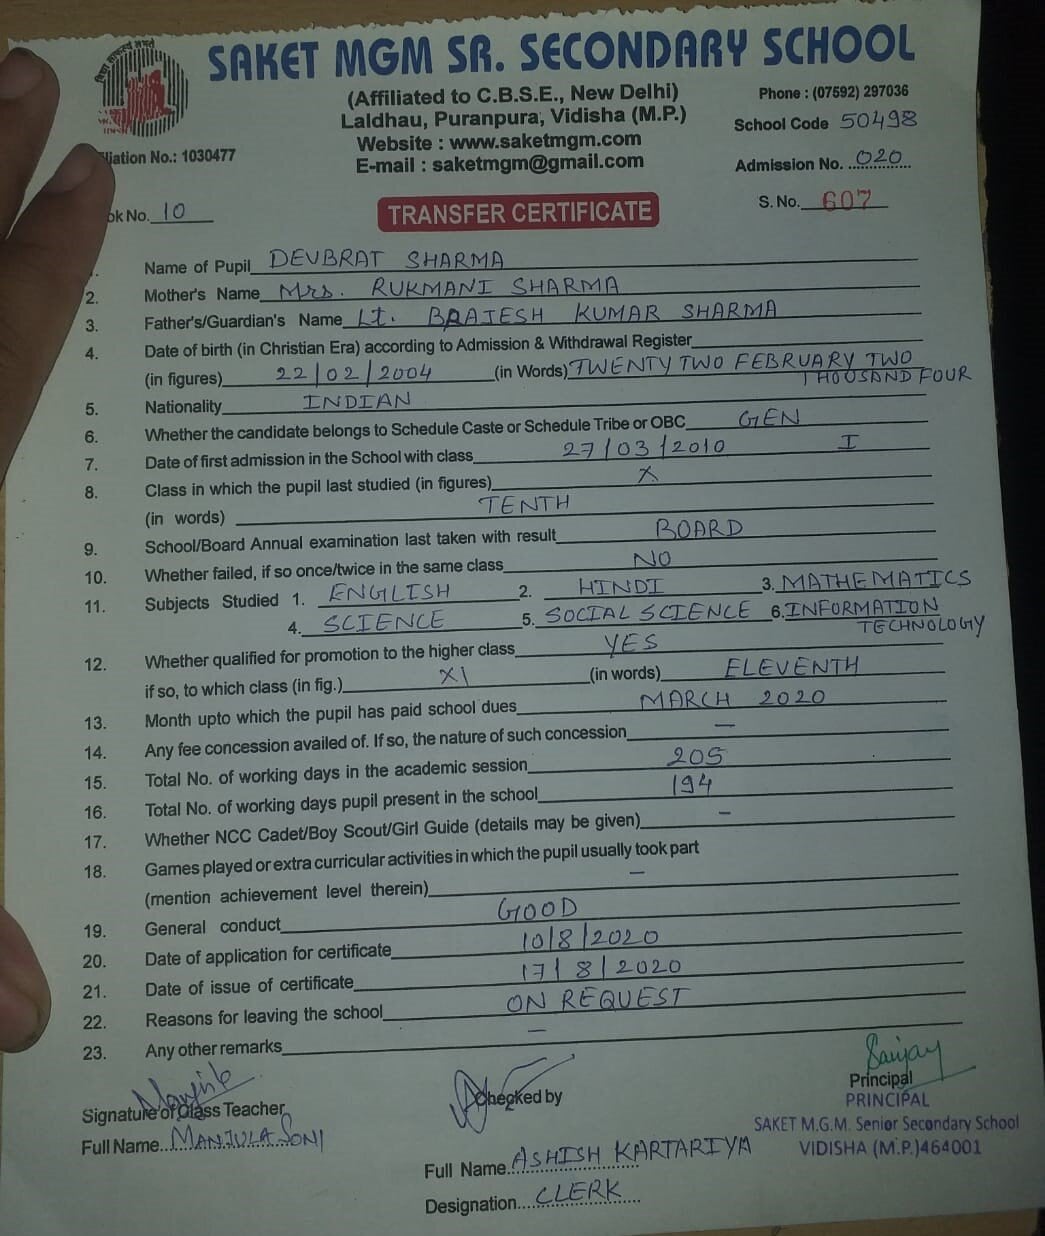 SAKET MGM SR. SECONDARY SCHOOL
(Affiliated to C.B.S.E., New Delhi)
Phone : (07592) 297036
Laldhau, Puranpura, Vidisha (M.P.)
School Code 50498
Website : www.saketmgm.com
E-mail : saketmgm@gmail.com
liation No.: 1030477
Admission No. 020
ok No. 10
TRANSFER CERTIFICATE
S. No. 607
Name of Pupil DEVBRAT SHARMA
2. Mother's Name Mrs. RUKMANI SHARMA
3. Father's/Guardian's Name Lt. BRAJESH KUMAR SHARMA
4. Date of birth (in Christian Era) according to Admission & Withdrawal Register
(in figures) 22/02/2004 (in Words) TWENTY TWO FEBRUARY TWO
THOUSAND FOUR
5. Nationality INDIAN
6. Whether the candidate belongs to Schedule Caste or Schedule Tribe or OBC GEN
7. Date of first admission in the School with class 27/03/2010 I
8. Class in which the pupil last studied (in figures) X
(in words) TENTH
9. School/Board Annual examination last taken with result BOARD
10. Whether failed, if so once/twice in the same class NO
11. Subjects Studied 1. ENGLISH 2. HINDI 3. MATHEMATICS
4. SCIENCE 5. SOCIAL SCIENCE 6. INFORMATION
TECHNOLOGY
12. Whether qualified for promotion to the higher class YES
if so, to which class (in fig.) XI (in words) ELEVENTH
13. Month upto which the pupil has paid school dues MARCH 2020
14. Any fee concession availed of. If so, the nature of such concession —
15. Total No. of working days in the academic session 205
16. Total No. of working days pupil present in the school 194
17. Whether NCC Cadet/Boy Scout/Girl Guide (details may be given) —
18. Games played or extra curricular activities in which the pupil usually took part
(mention achievement level therein) —
19. General conduct GOOD
20. Date of application for certificate 10/8/2020
21. Date of issue of certificate 17/8/2020
22. Reasons for leaving the school ON REQUEST
23. Any other remarks —
Sanjay
Signature of Class Teacher
Checked by
Principal
PRINCIPAL
SAKET M.G.M. Senior Secondary School
VIDISHA (M.P.)464001
Full Name.. MANJULA SONI
Full Name.. ASHISH KARTARIYA
Designation.... CLERK